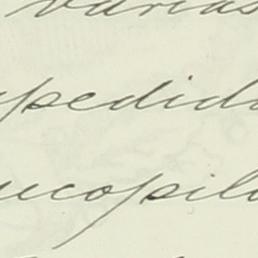 varias
pedido
ucopilo